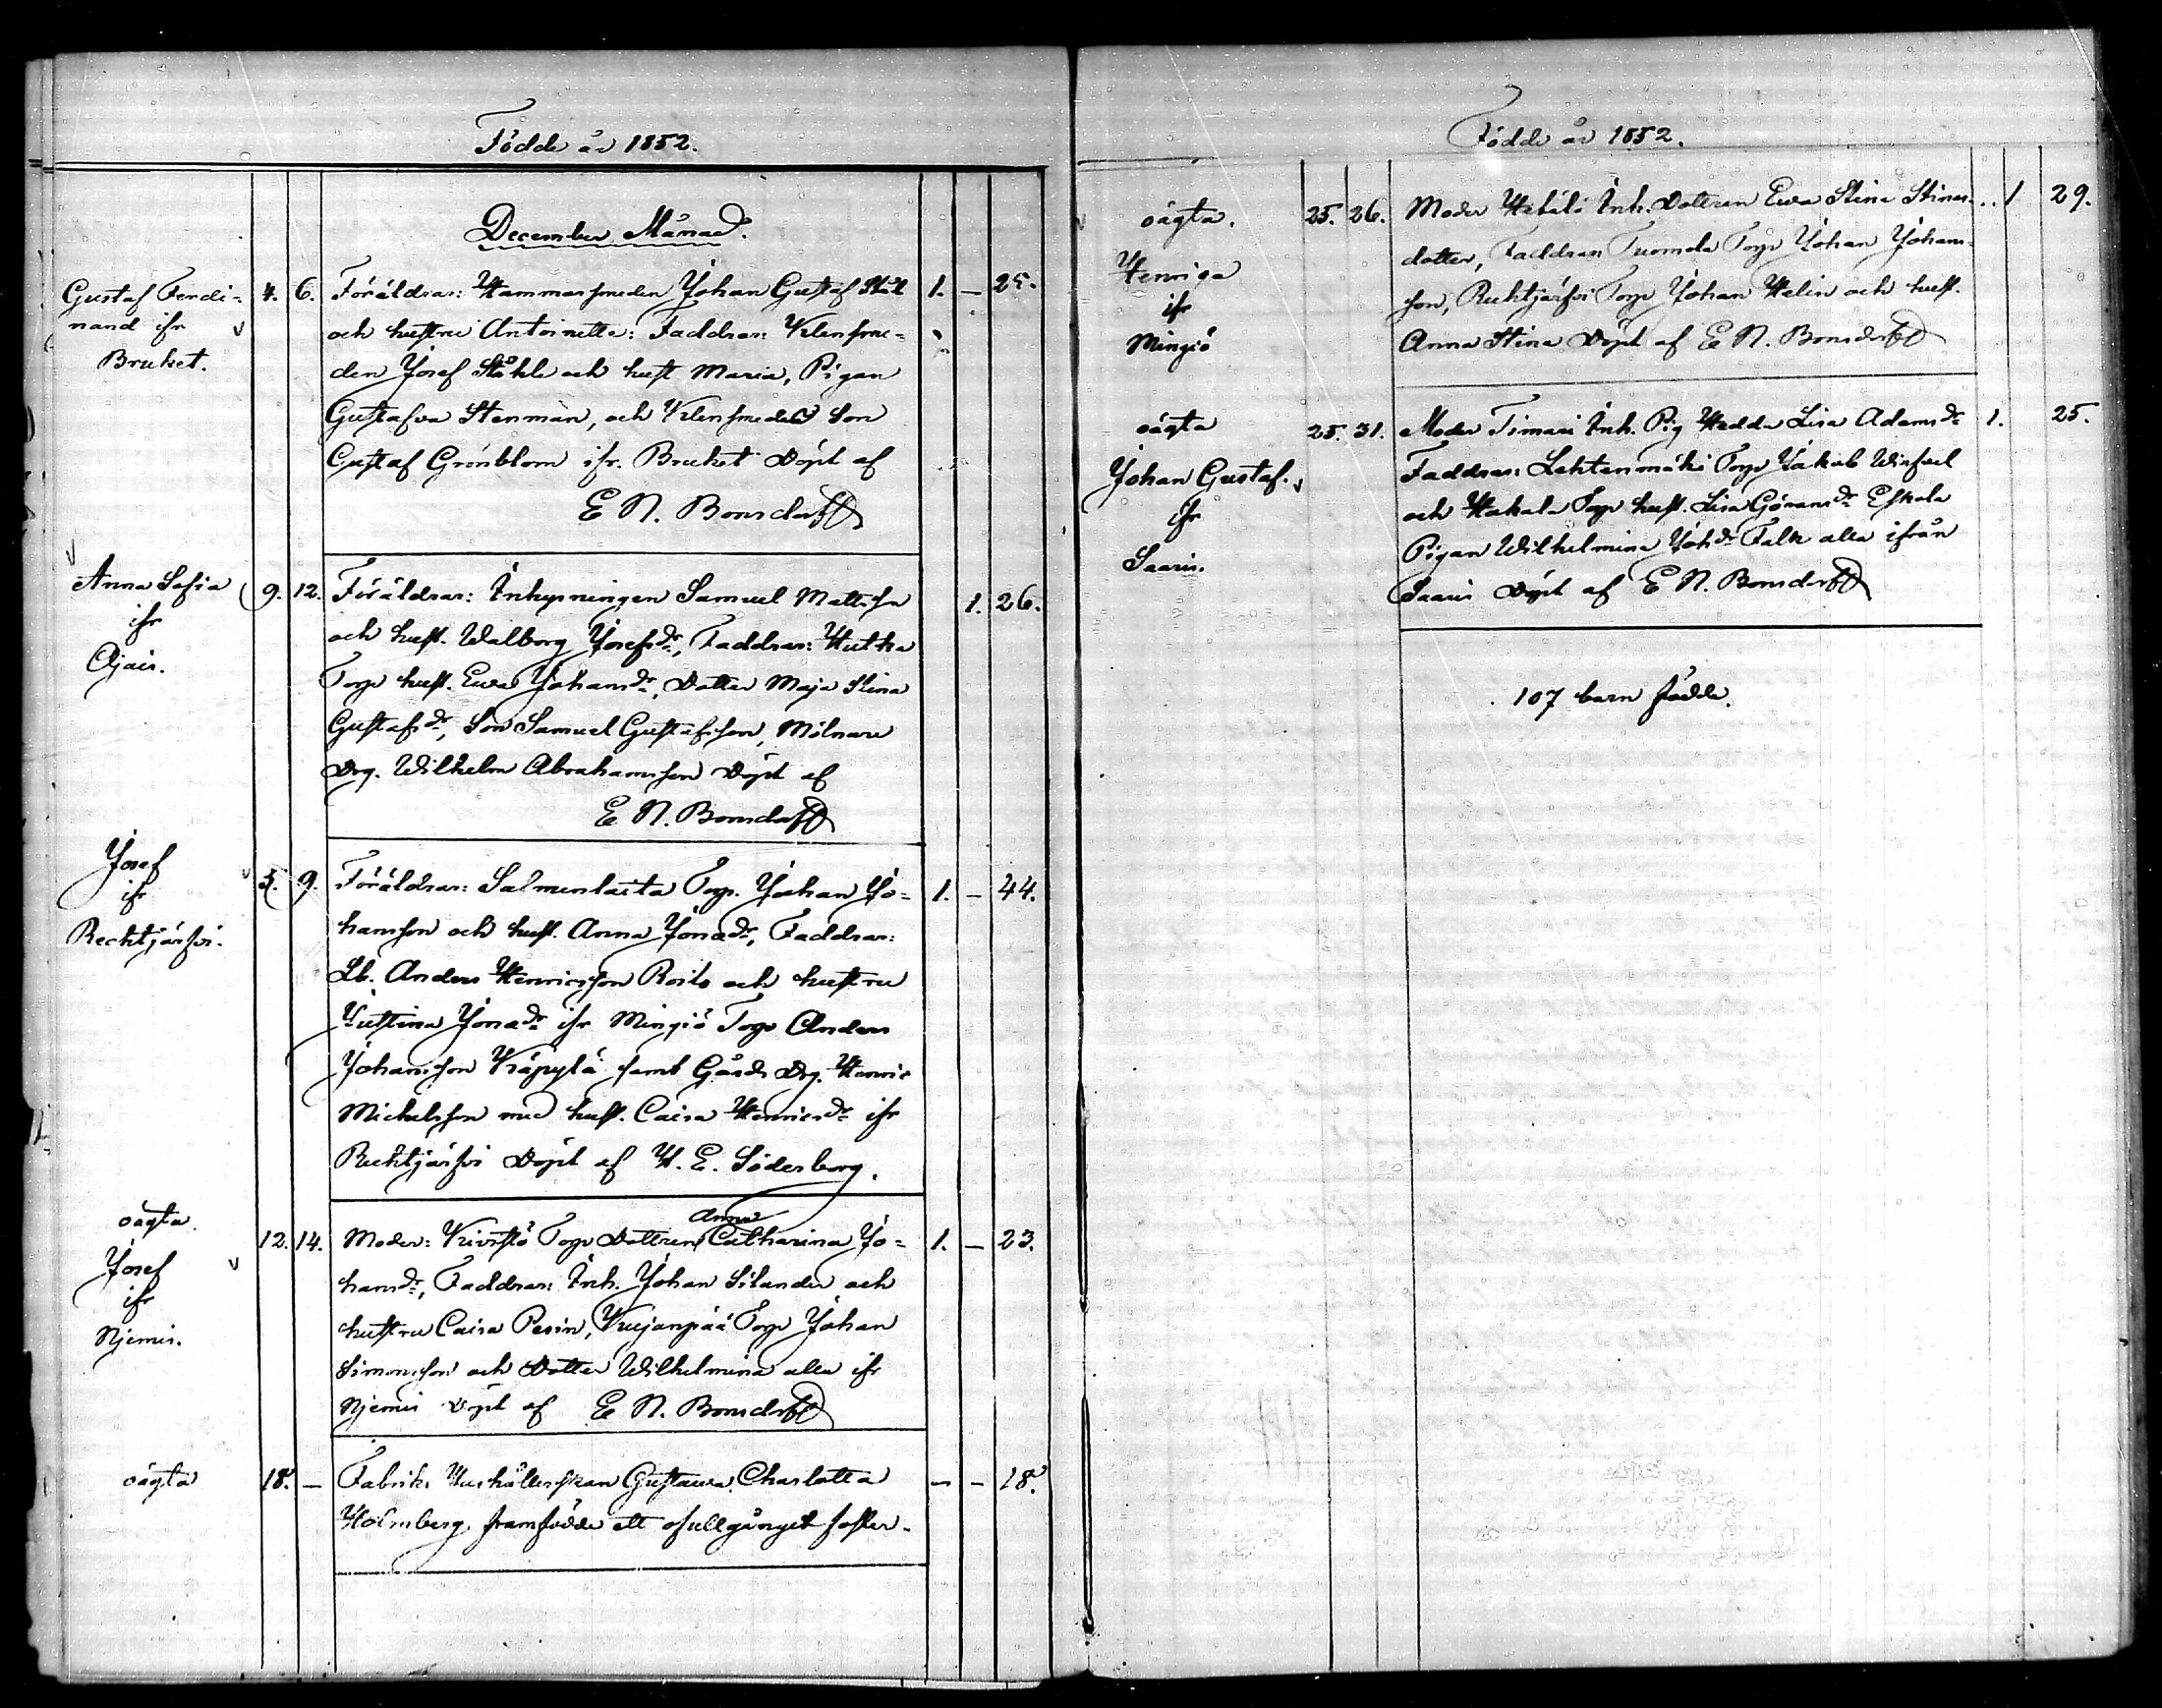 Födde år 1852.
December Månad.
Gustaf Ferdi-
nand ifr
Bruket.
4. 6. Föräldrar: Hammarsmeden Johan Gustaf Stål 1. — 25.
och hustru Antoinette: Faddrar: Klensme-
den Josef Ståhle och hust Maria, Pigan
Gustafva Stenman, och Klensmeds Son
Gustaf Grönblom ifr. Bruket Döpt af
E N. Bonsdorff
Anna Sofia
ifr
Ojais.
9. 12. Föräldrar: Inhysningen Samuel Mattsson 1. 26.
och hust. Walborg Josefsdr, Faddrar: Hutka
Torp hust. Ewa Johansdr, Dotter Maja Stina
Gustafsdr, Son Samuel Gustafsson, Mölnare
Drg. Wilhelm Abrahamsson Döpt af
E N. Bonsdorff
Josef
ifr
Rechtjärfvi.
5. 9. Föräldrar: Salmenlaita Torp. Johan Jo- 1. — 44.
hansson och hust. Anna Jonadr, Faddrar:
Lb. Anders Henricsson Roito och hustru
Justina Jonadr ifr Mingiö Torp Anders
Johansson Käpylä samt Gårds Drg. Henric
Michelsson med hust. Caisa Henricsdr ifr
Rechtjärfvi Döpt af H. E. Söderborg.
oägta.
Josef
ifr
Njemis.
Anna
12. 14. Moder: Torp Dottren Catharina Jo- 1. — 23.
hansdr, Faddrar: Inh. Johan Silander och
hustru Caisa Perin, Kujanpää Torp Johan
Simonsson och Dotter Wilhelmina alla ifr
Njemis Döpt af E N. Bonsdorff
oägta 18. — Fabriks Hushållerskan Gustawa Charlotta — — 18.
Holmberg framfödde ett ofullgånget foster.
Födde år 1852.
oägta.
Henriga
ifr
Mingiö
25. 26. Moder Inh. Dottren Ewa Stina Stinas- 1 29.
dotter, Faddrar Tuomola Torp Johan Johans-
son, Rechtjärfvi Torp Johan Helin och hust.
Anna Stina Döpt af E N. Bonsdorff
oägta
Johan Gustaf.
ifr
Saaris.
25. 31. Moder Timari Inh. Pig Hedda Lisa Adamsdr 1. 25.
Faddrar: Lehtenmäki Torp Jakob Winfvel
och Hakala Torp hust. Lisa Göransdr Eskola
Pigan Wilhelmina Johdr Falk alla ifrån
Saaris Döpt af E N. Bonsdorff
107 barn födde.